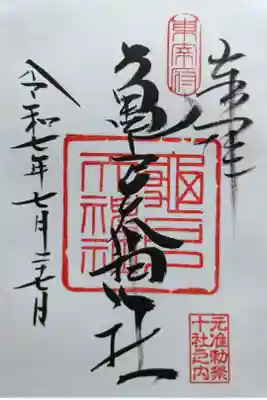 奉拝
東宰府
亀戸天神社
龜戸天神社
元准勅祭
十社之内
令和七年七月二十七日